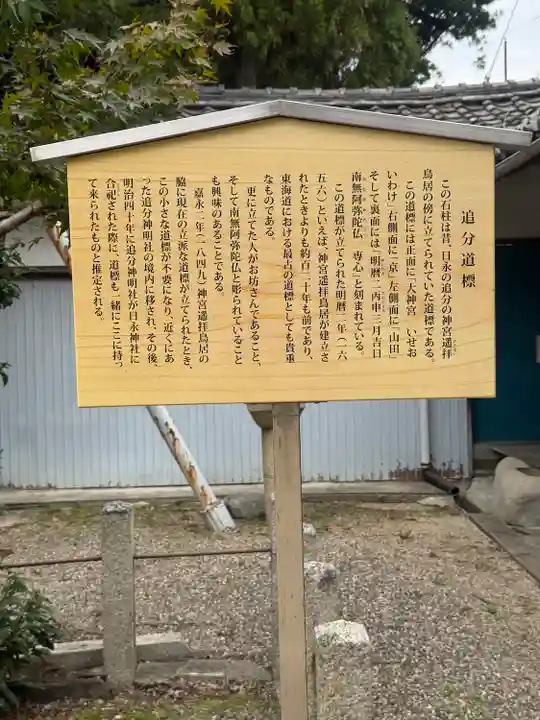 追分道標
この石柱は昔、日永の追分の神宮遥拝
鳥居の傍に立てられていた道標である。
この道標には正面に「大神宮　いせお
いわけ」右側面に「京」左側面に「山田」
そして裏面には「明暦二丙申三月吉日
南無阿弥陀仏　専心」と刻まれている。
この道標が立てられた明暦二年（一六
五六）といえば、神宮遥拝鳥居が建立さ
れたときよりも約百二十年も前であり、
東海道における最古の道標としても貴重
なものである。
更に立てた人がお坊さんであること、
そして南無阿弥陀仏と彫られていること
も興味のあることである。
嘉永二年（一八四九）神宮遥拝鳥居の
脇に現在の立派な道標が立てられたとき、
この小さな道標が不要になり、近くにあ
った追分神明社の境内に移され、その後、
明治四十年に追分神明社が日永神社に
合祀された際に、道標も一緒にここに持っ
て来られたものと推定される。